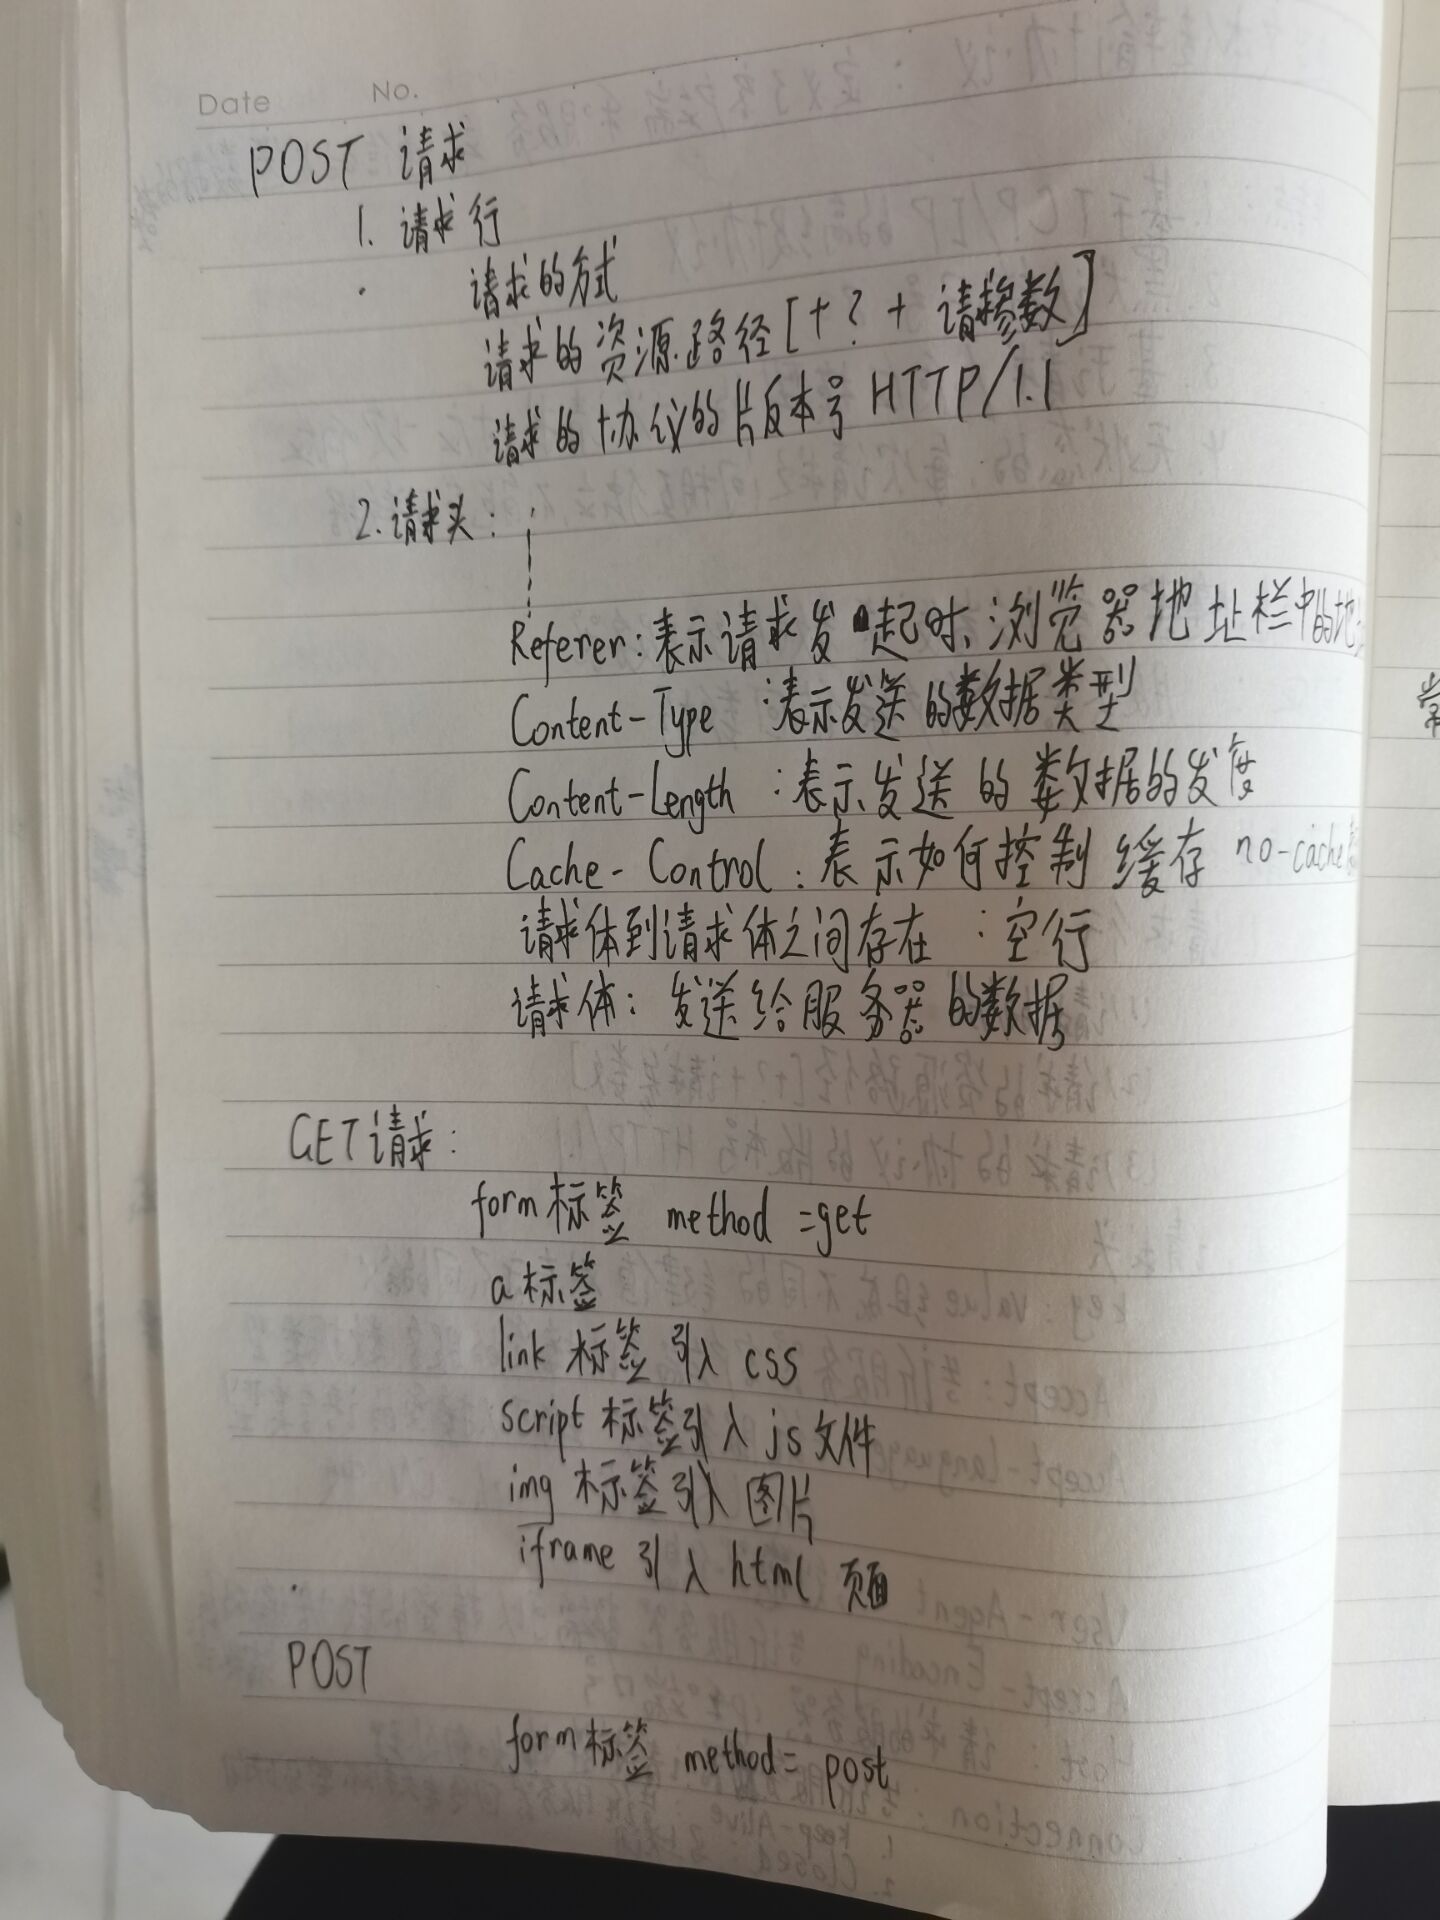 Date No.
POST 请求
1. 请求行
请求的方式
请求的资源路径[+?+ 请求参数]
请求的协议的版本号 HTTP/1.1
2.请求头:
Referer:表示请求发 起时,浏览器地址栏中的地
Content-Type :表示发送的数据类型
Content-Length :表示发送的数据的发度
Cache-Control:表示如何控制缓存 no-cache
请求体到请求体之间存在 :空行
请求体: 发送给服务器的数据
GET请求:
form标签 method =get
a标签
link 标签 引入 css
script 标签引入 js文件
img 标签引入 图片
iframe 引入 html 页面
POST
form标签 method= post